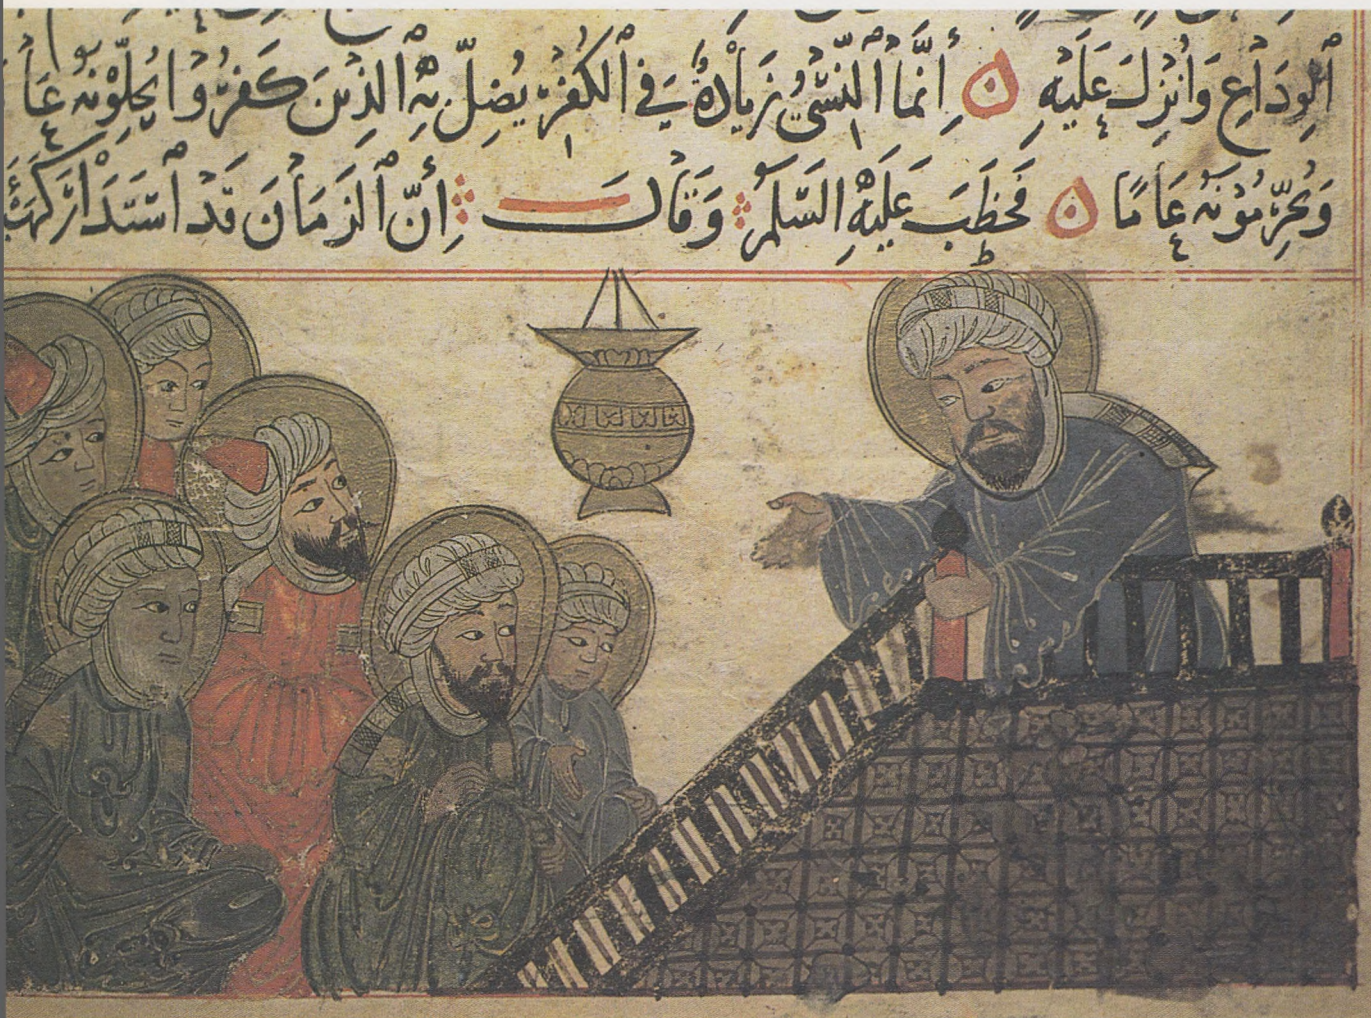 الوداع وأنزل عليه ن إنما النسيء زيادة في الكفر يضل به الذين كفروا يحلونه عا
ويحرمونه عاما ن فخطب عليه السلم وقال إن الزمان قد استدار كهيئ